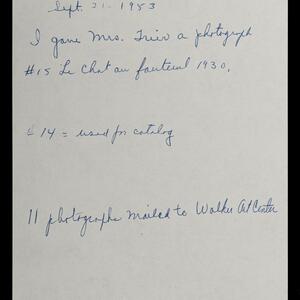 Sept. 21 - 1953
I gave Mrs. a photograph
#15 Le Chat au fauteuil 1930.
# 14 = used for catalog
11 photographs mailed to Walker Art Center